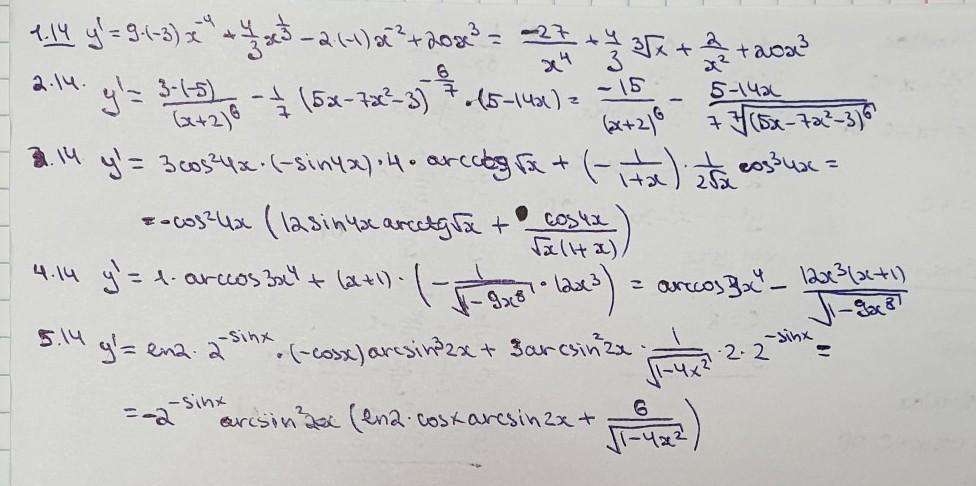 1.14 y' = 9·(-3)x⁻⁴ + 4/3 x^(1/3) - 2·(-1)x⁻² + 20x³ = -27/x⁴ + 4/3 ∛x + 2/x² + 20x³
2.14. y' = 3·(-5)/(x+2)⁶ - 1/7 (5x-7x²-3)^(-6/7) · (5-14x) = -15/(x+2)⁶ - (5-14x)/(7 ⁷√(5x-7x²-3)⁶)
3.14 y' = 3cos²4x·(-sin4x)·4·arcctg√x + (-1/(1+x))·1/(2√x) cos³4x =
= -cos²4x (12sin4x arcctg√x + cos4x/(√x(1+x)))
4.14 y' = 1·arccos3x⁴ + (x+1)·(-1/√(1-9x⁸)·12x³) = arccos3x⁴ - 12x³(x+1)/√(1-9x⁸)
5.14 y' = ln2·2^(-sinx)·(-cosx)arcsin³2x + 3arcsin²2x·1/√(1-4x²)·2·2^(-sinx) =
= -2^(-sinx) arcsin²2x (ln2·cosx arcsin2x + 6/√(1-4x²))